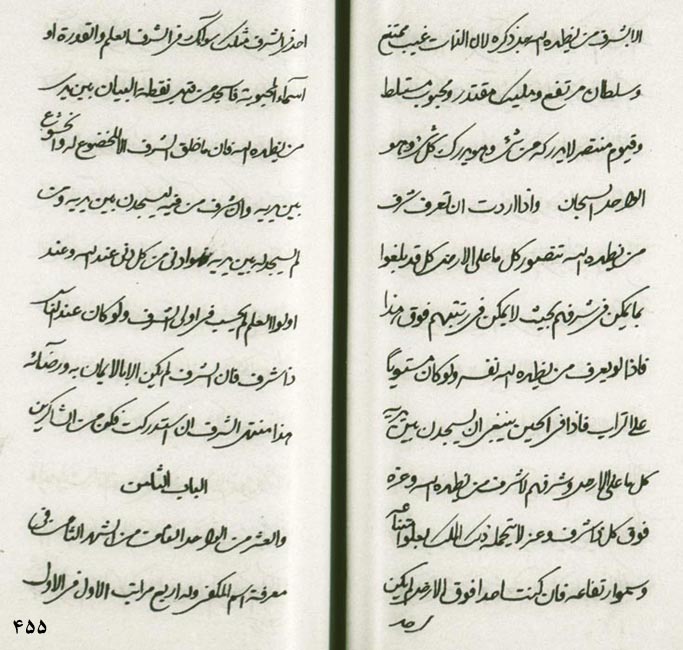 الا بشرف من يظهره الله جل ذكره لان الذات غيب ممتنع
وسلطان مرتفع ومليك مقتدر ومحبوب متسلط
وقيوم منتصر لا يدركه من شئ وهو يدرك كل شئ وهو
الواحد السبحان واذا اردت ان تعرف شرف
من يظهره الله تتصور كل ما على الارض كل قد بلغوا
بما يمكن في شرفهم بحيث لا يمكن في رتبتهم فوق هذا
فاذا لو يعرف من يظهره الله نفسه ولو كان مستويا
على التراب فاذا في الحين ينبغي ان يسجدن بين يديه
كل ما على الارض وشرفهم لا شرف من يظهره الله وعزه
فوق كل ذي شرف وعز لا يتحمله ذلك الملك بعلو امتناعه
وسمو ارتفاعه فان كنت احدا فوق الارض لم يكن
احد
احد في الشرف مثلك سواك في الشرف العلم والقدرة او
اسماء المحبوبة فاسجد من قبل نقطة البيان بين يدي
من يظهره الله فان ما خلق الشرف الا للخضوع له والخشوع
بين يديه وان شرف من فيه ليسجدن بين يديه ومن
لم يسجد له بين يديه فهو ادنى من كل دنى عند الله وعند
اولوا العلم لم يحسب في اولى الشرف ولو كان عند الناس
ذا شرف فان الشرف لم يكن الا بالايمان به ورضائه
هذا منتهى الشرف ان استدركت فكن من الشاكرين
الباب الثامن
والعشر من الواحد الثامن من الشهر الثامن في
معرفة اسم المكفى وله اربع مراتب الاول في الاول
۴۵۵